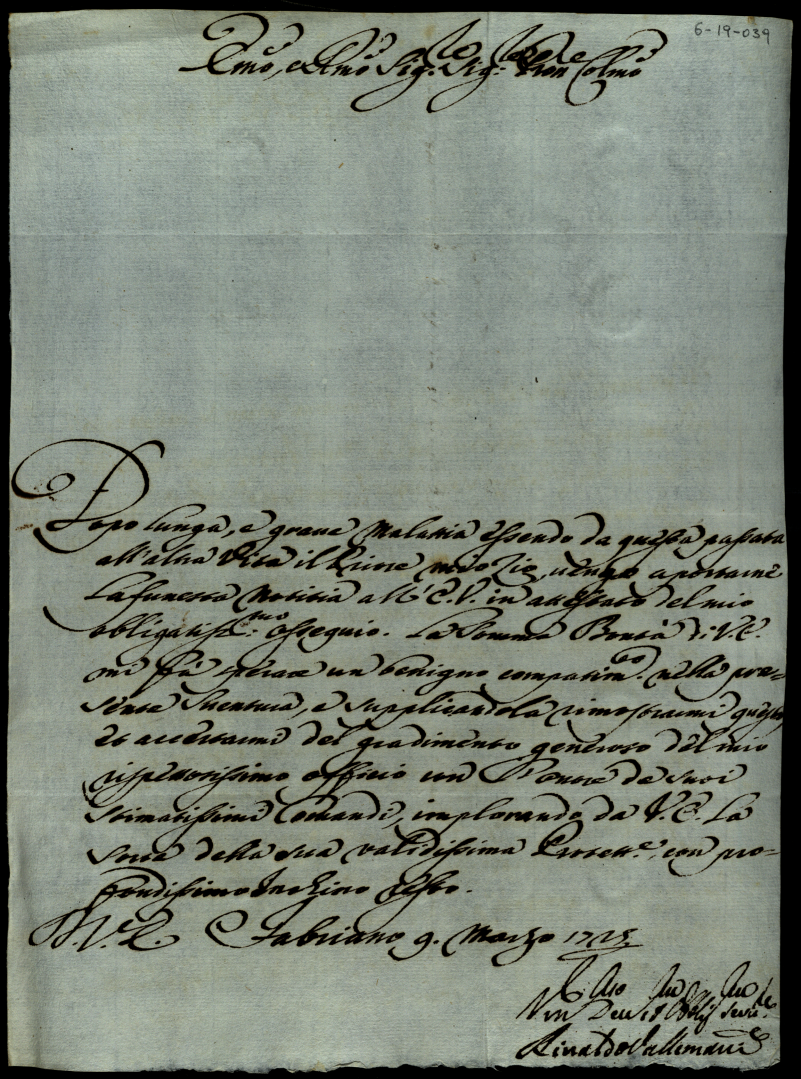 6-19-039
Emo, e Rmo Sig.re Sig.re Pron Colmo
Dopo lunga, e graue Malatia essendo da questa passata
all'altra Vita il Priore mio Zio, uengo a portarne
la funesta Notitia all'E.V. in attestato del mio
obligatiss.mo ossequio. La Somma Bontà di V.E.
mi fà sperare un benigno compatim.to nella pre=
sente Suentura, e supplicandola rimostrarmi questo,
et accertarmi del gradimento generoso del mio
rispettosissimo officio con l'onore de suoi
stimatissimi Comandi, implorando da V.E. la
sorte della sua validissima Protett.e, con pro=
fondissimo Inchino resto.
D.V.E. Fabriano 9. Marzo 1725.
Vm Deu.mo Obl.mo Serure
Rinaldo Vallemani